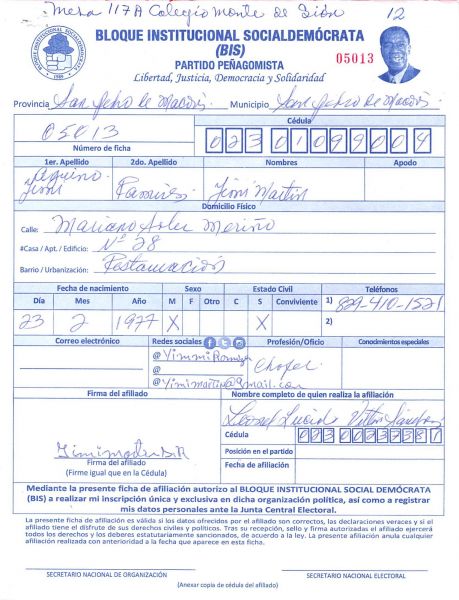 Mesa 117A Colegio Monte de Sión 12
BLOQUE INSTITUCIONAL SOCIALDEMÓCRATA
(BIS)
PARTIDO PEÑAGOMISTA
Libertad, Justicia, Democracia y Solidaridad
05013
Provincia San Pedro de Macorís Municipio San Pedro de Macorís
05013
Número de ficha
Cédula
02301099004
1er. Apellido 2do. Apellido Nombres Apodo
Aquino
Jimi Ramirez Jimi Martin
Domicilio Físico
Calle: Mariano Soler Meriño
#Casa / Apt. / Edificio: Nº 28
Barrio / Urbanización: Restauración
Fecha de nacimiento Sexo Estado Civil Teléfonos
Día Mes Año M F Otro C S Conviviente 1) 829-410-1521
23 2 1977 X X 2)
Correo electrónico Redes sociales Profesión/Oficio Conocimientos especiales
@
@ Chofer
@ Yimimartin@gmail.com
Firma del afiliado Nombre completo de quien realiza la afiliación
Cédula
Posición en el partido
Fecha de afiliación
Firma del afiliado
(Firme igual que en la Cédula)
Mediante la presente ficha de afiliación autorizo al BLOQUE INSTITUCIONAL SOCIAL DEMÓCRATA
(BIS) a realizar mi inscripción única y exclusiva en dicha organización política, así como a registrar
mis datos personales ante la Junta Central Electoral.
La presente ficha de afiliación es válida si los datos ofrecidos por el afiliado son correctos, las declaraciones veraces y si el
afiliado tiene el disfrute de sus derechos civiles y políticos. Tras su recepción, sello y firma autorizadas el afiliado ejercerá
todos los derechos y los deberes estatutariamente sancionados, de acuerdo a la ley. La presente afiliación anula cualquier
afiliación realizada con anterioridad a la fecha que aparece en esta ficha.
SECRETARIO NACIONAL DE ORGANIZACIÓN SECRETARIO NACIONAL ELECTORAL
(Anexar copia de cédula del afiliado)